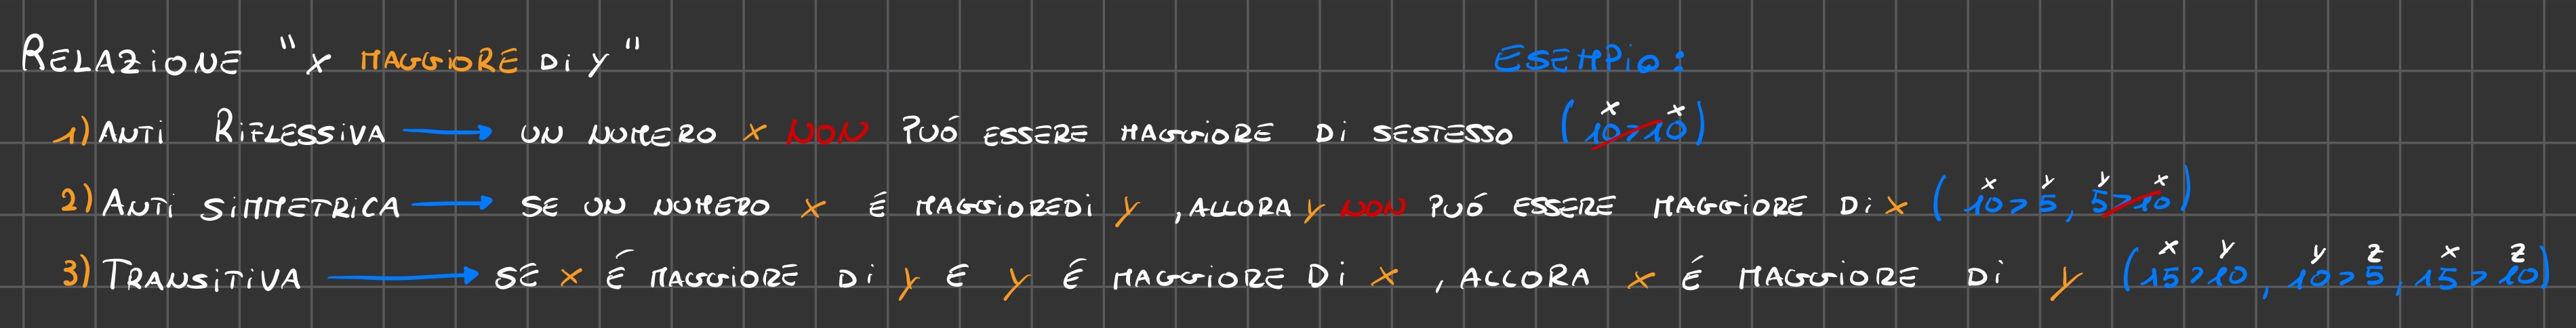 RELAZIONE "x MAGGIORE Di y"
ESEMPIO:
1) ANTI RIFLESSIVA → UN NUMERO x NON PUÓ ESSERE MAGGIORE Di SESTESSO (10>10) x x
2) ANTI SIMMETRICA → SE UN NUMERO x É MAGGIOREDI y , ALLORA y NON PUÓ ESSERE MAGGIORE Di x (10>5, 5>10) x y y x
3) TRANSITIVA → SE x É MAGGIORE Di y E y É MAGGIORE Di x , ALLORA x É MAGGIORE Di y (15>10, 10>5, 15>10) x y y z x z